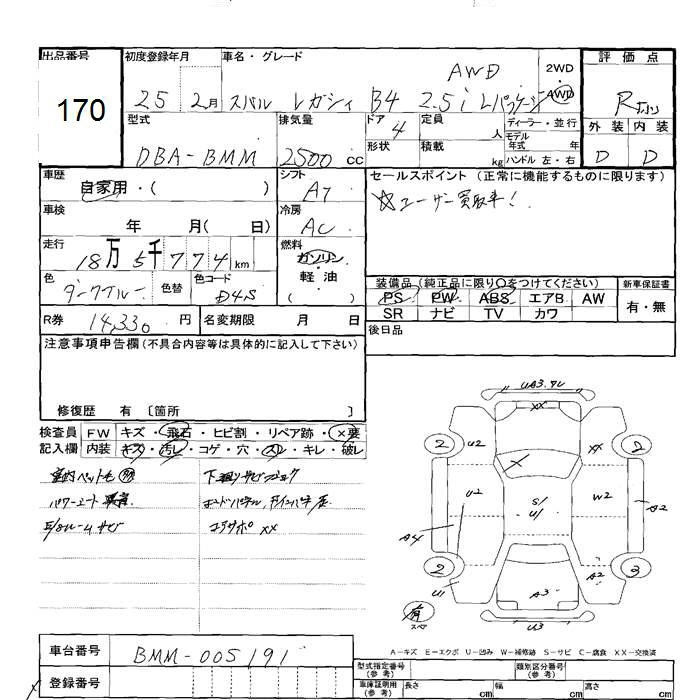 出品番号 初度登録年月 車名・グレード 評価点
170 25 2月 スバル レガシィ B4 2.5i Lパッケージ AWD 2WD・AWD R
型式 排気量 ドア 4 定員 人 ディーラー・並行 外装 内装
DBA-BMM 2500 cc 形状 積載 kg モデル年式 年 ハンドル 左・右 D D
車歴 自家用・( ) シフト AT セールスポイント (正常に機能するものに限ります)
車検 年 月( 日) 冷房 AC ☆ユーザー買取車!
走行 18万5千774km 燃料 ガソリン・軽油 ( )
色 ダークブルー 色替 色コード D4S
装備品(純正品に限り○をつけてください) 新車保証書
PS PW ABS エアB AW 有・無
SR ナビ TV カワ
R券 14,330円 名変期限 月 日 後日品
注意事項申告欄(不具合内容等は具体的に記入して下さい)
修復歴 有 〔箇所 〕
検査員 FW キズ・飛石・ヒビ割・リペア跡・×要
記入欄 内装 キズ・汚レ・コゲ・穴・スレ・キレ・破レ
室内ペット毛
下廻りサビ
コアサポ XX
UA3.ワレ
XX
2 U2 XX 2
X
U2 S/U1 W2
A4 A2
2 A2 2
U1 A3
有 スペア
U3
A-キズ E-エクボ U-凹み W-補修跡 S-サビ C-腐食 XX-交換済
車台番号 BMM-005191
型式指定番号(参考) 類別区分番号(参考)
登録番号
車庫証明用(参考) 長さ cm 幅 cm 高さ cm